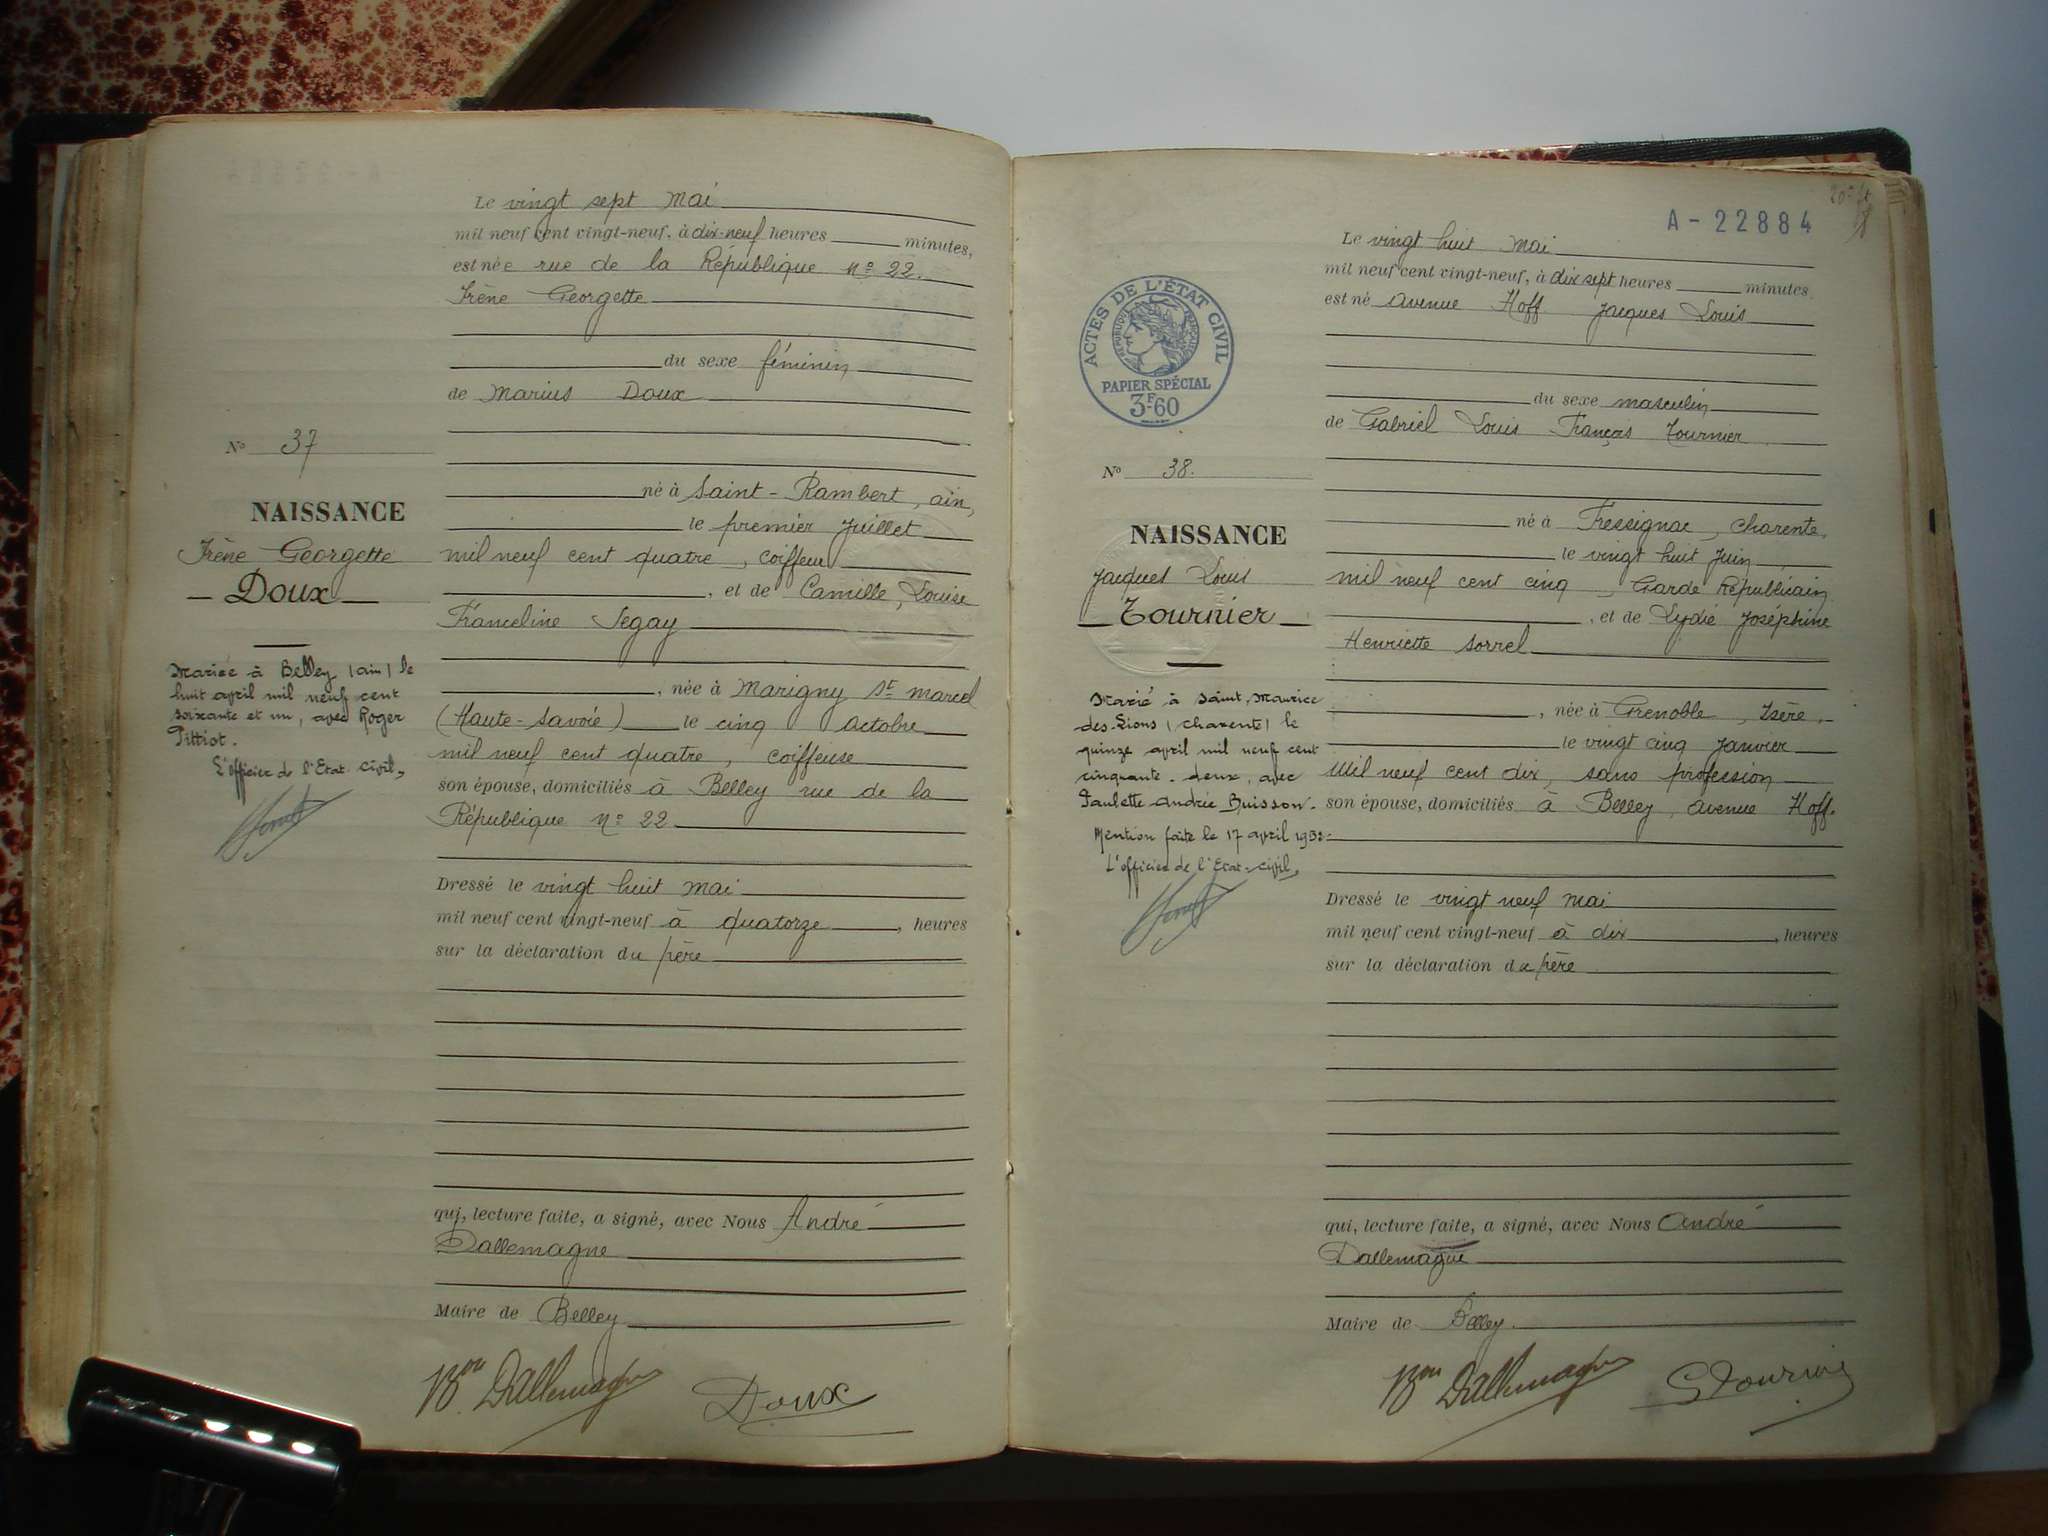 Le vingt sept Mai
mil neuf cent vingt-neuf, à dix-neuf heures minutes,
est née rue de la République N° 22.
Irène Georgette
du sexe féminin
de Marius Doux
N° 37
né à Saint-Rambert, ain,
le premier Juillet
NAISSANCE
Irène Georgette
Doux
mil neuf cent quatre, coiffeur
, et de Camille, Louise
Franceline Segay
Mariée à Belley (ain) le
huit avril mil neuf cent
soixante et un, avec Roger
Pittiot.
L'officier de l'Etat-civil,
, née à Marigny St marcel
(Haute-Savoie) le cinq octobre
mil neuf cent quatre, coiffeuse
son épouse, domiciliés à Belley rue de la
République N° 22
Dressé le vingt huit Mai
mil neuf cent vingt-neuf à quatorze, heures
sur la déclaration du père
qui, lecture faite, a signé, avec Nous André
Dallemagne
Maire de Belley
Bon Dallemagne
Doux
A-22884
Le vingt huit Mai
mil neuf cent vingt-neuf, à dix sept heures minutes
est né Avenue Hoff Jacques Louis
ACTES DE L'ÉTAT CIVIL
RÉPUBLIQUE FRANÇAISE
PAPIER SPÉCIAL
3F60
du sexe masculin
de Gabriel Louis François Tournier
N° 38.
né à Fressignac, Charente,
le vingt huit Juin
NAISSANCE
Jacques Louis
Tournier
mil neuf cent cinq, Garde Républicain
, et de Lydie Joséphine
Henriette Sorrel
Marié à Saint-Maurice
des-Lions (Charente) le
quinze avril mil neuf cent
cinquante-deux, avec
Paulette Andrée Buisson.
Mention faite le 17 avril 1952.
L'officier de l'Etat-civil,
, née à Grenoble, Isère,
le vingt cinq Janvier
Mil neuf cent dix, sans profession
son épouse, domiciliés à Belley, avenue Hoff.
Dressé le vingt neuf Mai
mil neuf cent vingt-neuf à dix, heures
sur la déclaration du père
qui, lecture faite, a signé, avec Nous André
Dallemagne
Maire de Belley.
Bon Dallemagne
G Tournier